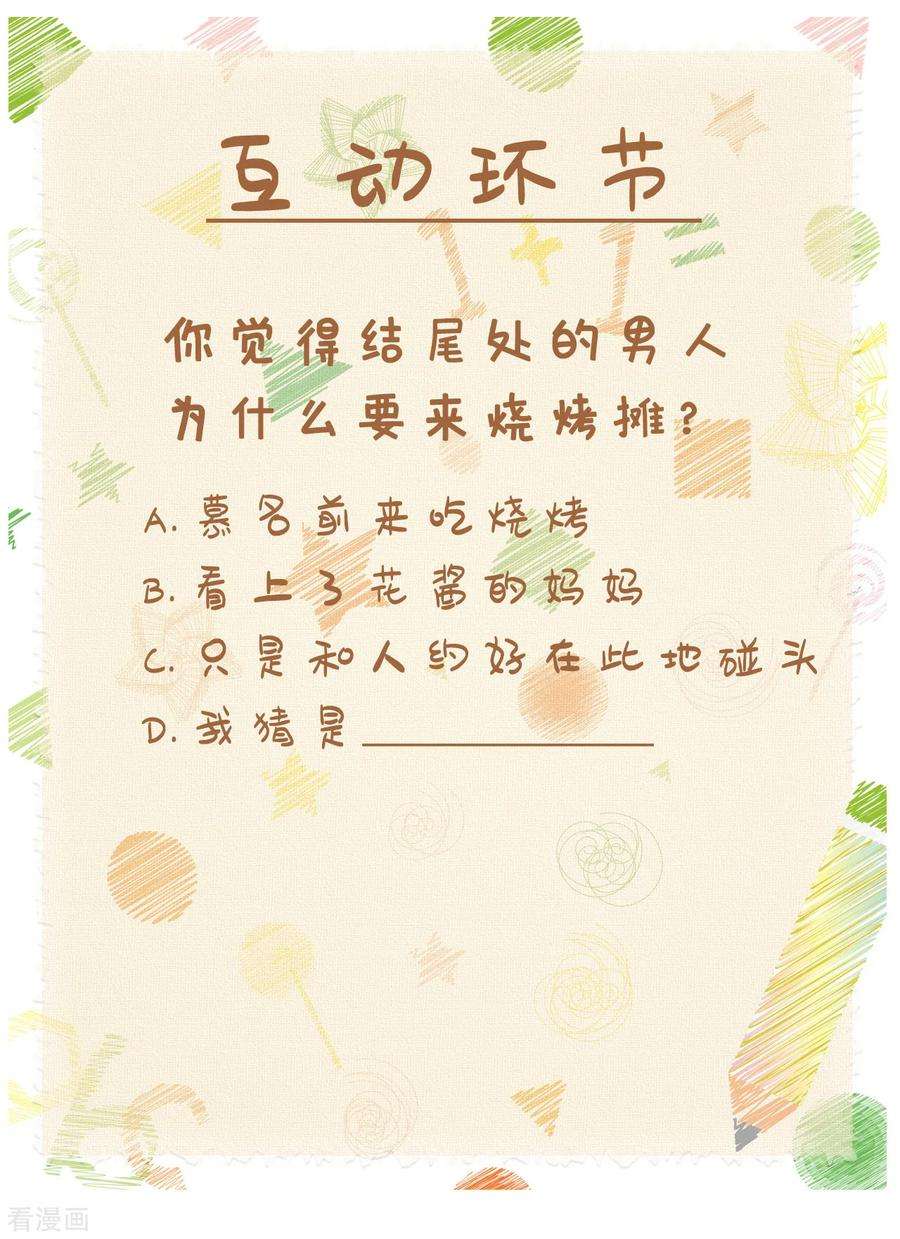 互动环节
你觉得结尾处的男人
为什么要来烧烤摊?
A.慕名前来吃烧烤
B.看上了花酱的妈妈
C.只是和人约好在此地碰头
D.我猜是
1+1=
看漫画